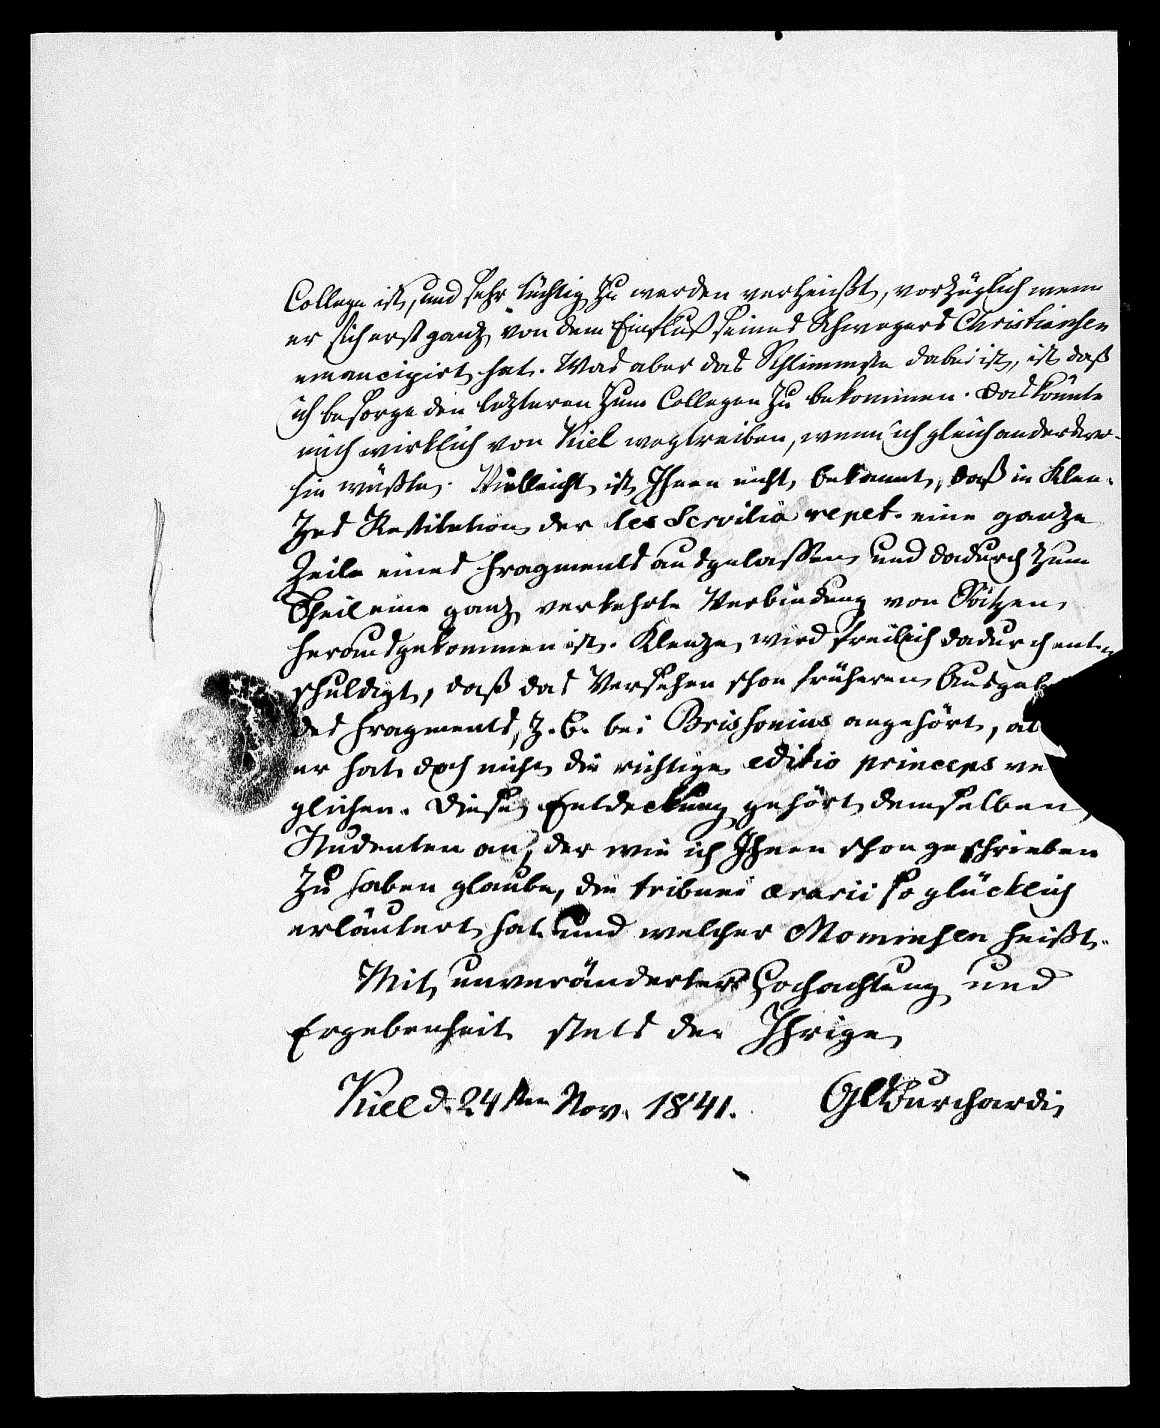 College ist, und sehr tüchtig zu werden verheißt, vorzüglich wenn
er sich erst ganz von dem Einfluß seines Schwagers Christiansen
emancipirt hat. Was aber das Schlimmste dabei ist, ist daß
ich besorge den lezteren zum Collegen zu bekommen. Das könnte
mich wirklich von Kiel wegtreiben, wenn ich gleich anderswo-
hin müßte. Vielleicht ist Ihnen nicht bekannt, daß in Klen-
zes Restitution der lex Servilia repet. eine ganze
Zeile eines Fragments ausgelassen und dadurch zum
Theil eine ganz verkehrte Verbindung von Sätzen
herausgekommen ist. Klenze wird freilich dadurch ent-
schuldigt, daß das Versehen schon früheren Ausgab
des Fragments, z. B. bei Brissonius angehört, ab
er hat doch nicht die richtige editio princeps ve
glichen. Diese Entdeckung gehört demselben
Studenten an, der wie ich Ihnen schon geschrieben
zu haben glaube, die tribuni ærarii so glücklich
erläutert hat und welcher Mommsen heißt.
Mit unveränderter Hochachtung und
Ergebenheit stets der Ihrige
Kiel d. 24sten Nov. 1841. GCBurchardi